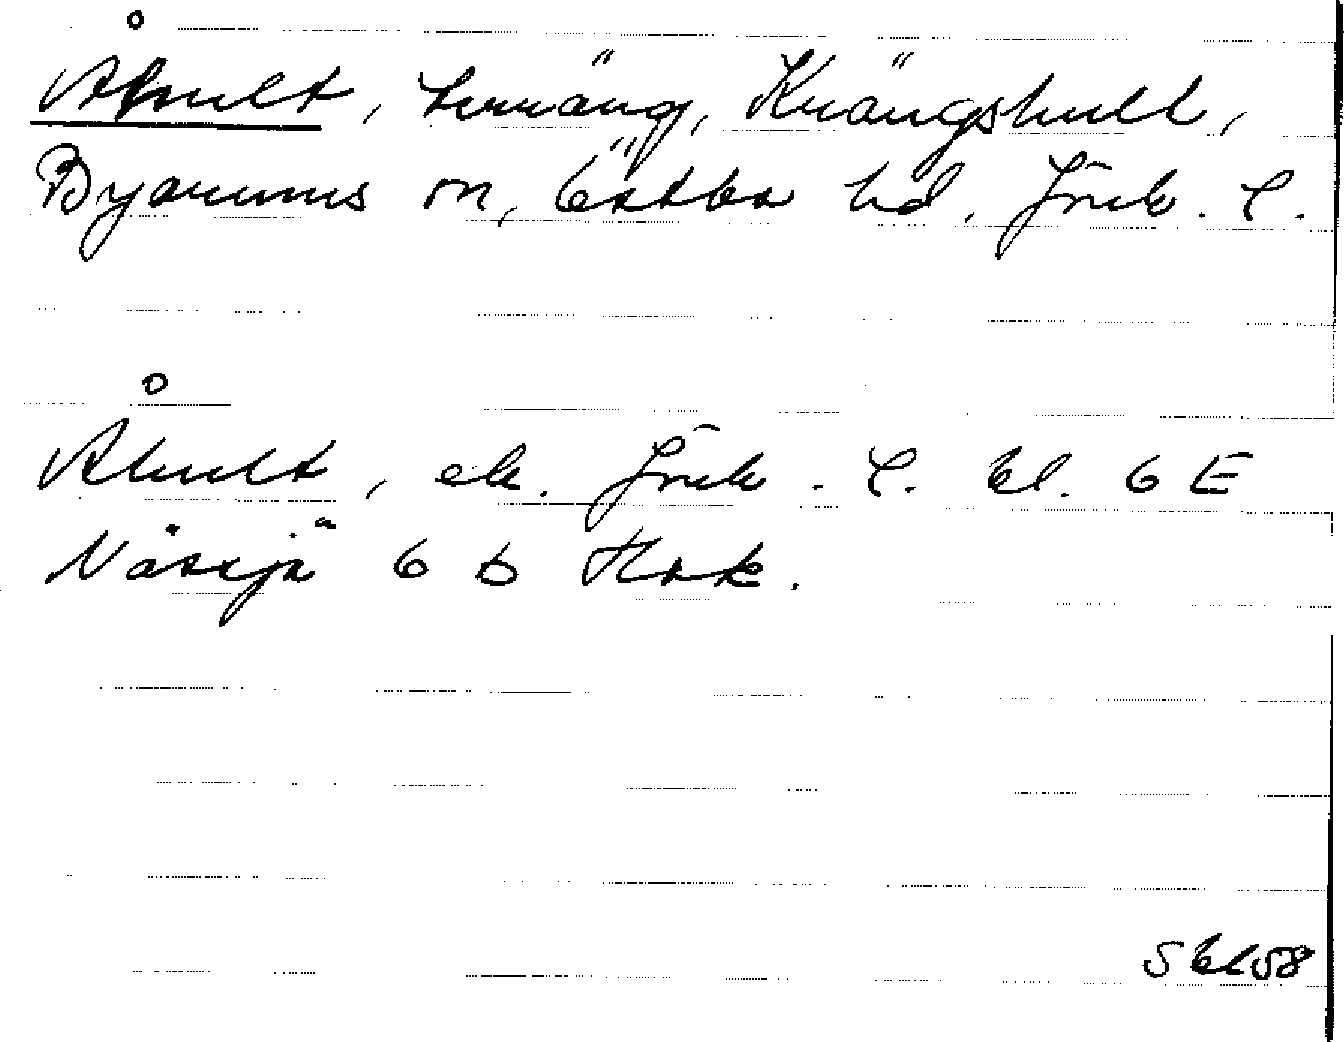 Åhult, terräng, Knängshult,
Byarums sn, Östbo hd. Jönk. l.
Åhult, ek. Jönk. l. bl. 6 E
Nässjö 6 b Hok.
S bl 58